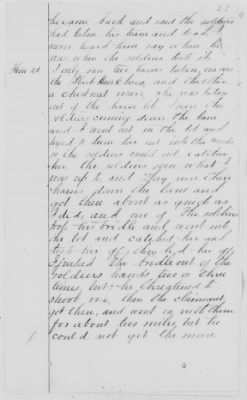 he came back and said the soldiers
had taken his team and load, I
never heard him say where he
was when the soldiers took it
Item 20 I only saw two horses taken, one was
the Black and the other
a chestnut mare, she was taken
out of the horse lot I saw the
soldiers coming down the lane
and I went out in the lot and
tryed to turn her out into the woods
so the soldiers could not catch
her the soldiers seen what I
was up to and they run their
horses down the lane and
got there about as quick as
I did, and one of the soldiers
took his bridle and went into
the lot and catched her and
took her off
I jerked the bridle out of the
soldiers hands two or three
times, but he threatened to
shoot me then the claimant
got there, and went on with them
for about two miles, but he
could not get the mare